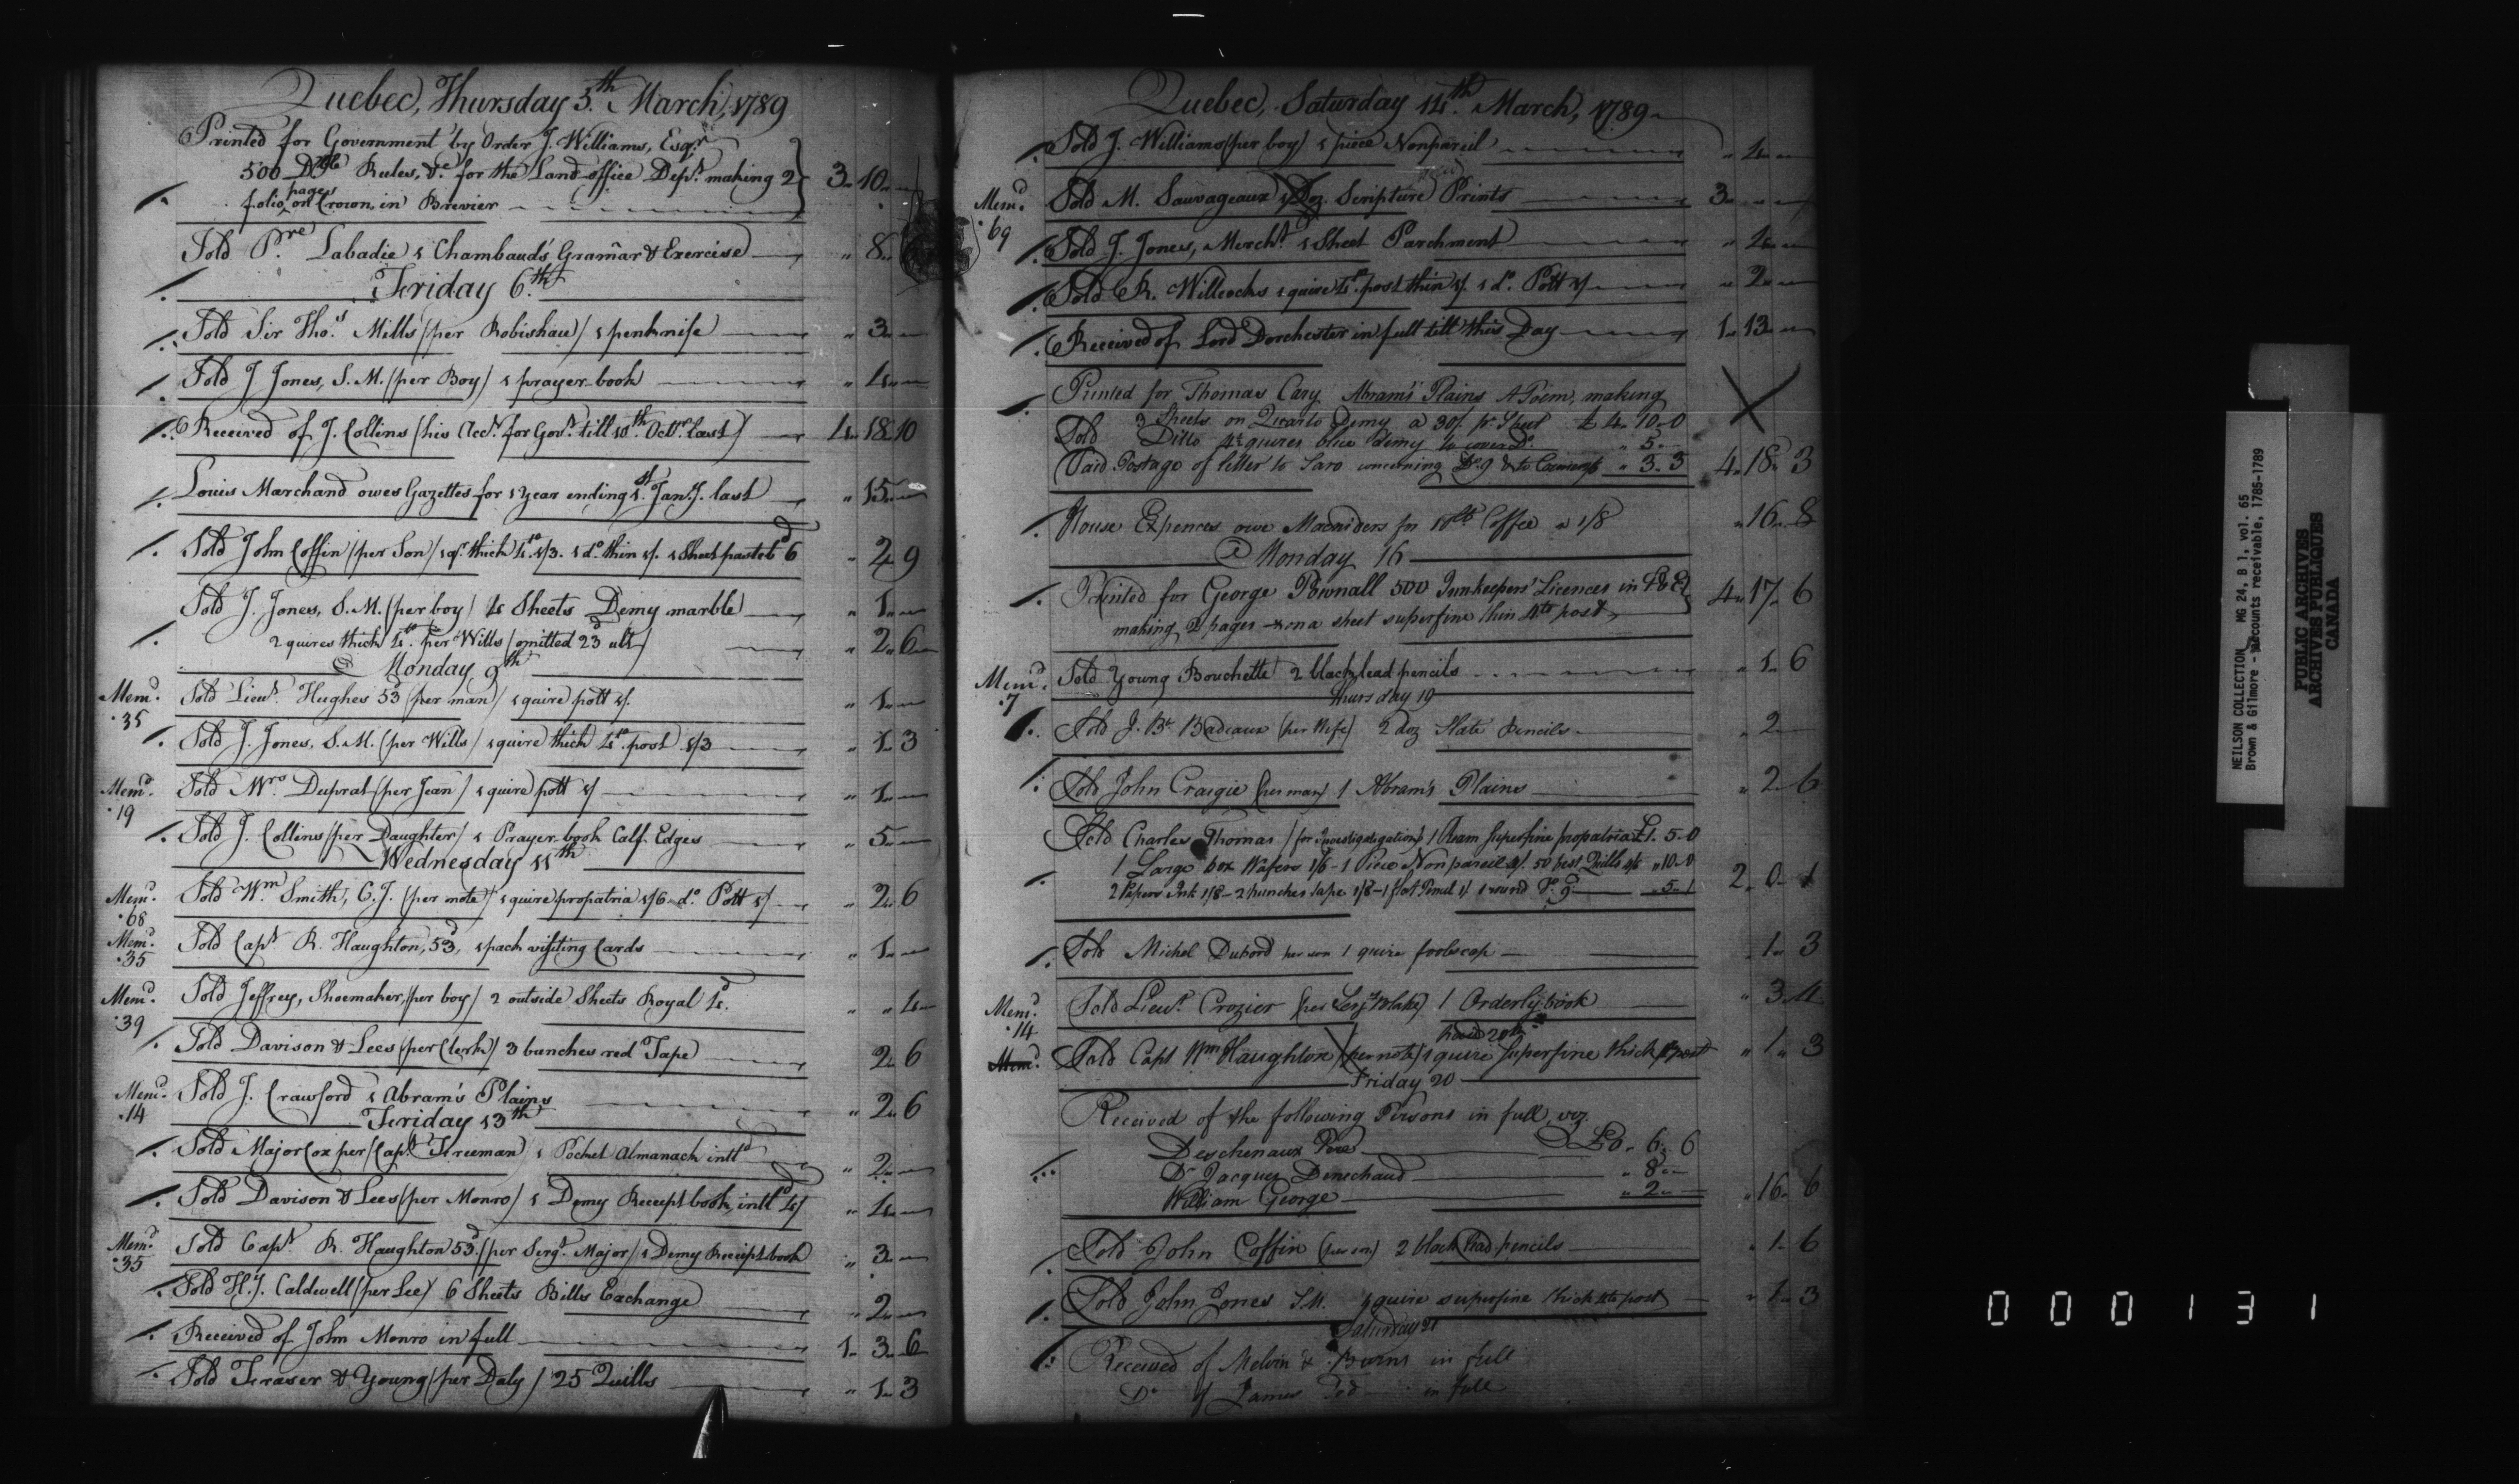 Quebec, Thursday 5.th March, 1789
Printed for Government by Order J. Williams, Esqr.
500 Dble Rules, &c. for the Land-office Dept. making 2
folio pages on Crown, in Brevier 3 10
Sold Pre. Labadie 1 Chambaud's Gramar & Exercise " 8
Friday 6.th
Sold Sir Thos. Mills (per Robishau) 1 penknife " 3
Sold J Jones, S. M. (per Boy) 1 prayer-book " 4
Received of J. Collins (his Acct. for Govt. till 10th. Octr. last) 4 18 10
Louis Marchand owes Gazettes for 1 year ending 1st. Jany. last " 15
Sold John Coffin (per Son) 1 qr. thick 4to. 1/3. 1 do. thin 1/. 1 Sheet pasteb.d 6 " 2 9
Sold J. Jones, S. M. (per boy) 4 Sheets Demy marble " 1
2 quires thick 4to. per Wills (omitted 23d ult) " 2 6
@ Monday 9th
Memd. 35 Sold Lieut. Hughes 53d (per man) 1 quire pott 1/. " 1
Sold J. Jones, S. M. (per Wills) 1 quire thick 4to. post 1/3 " 1 3
Memd. 19 Sold Mrs. Duprat (per Jean) 1 quire pott 1/ " 1
Sold J. Collins (per Daughter) 1 Prayer-book Calf. Edges " 5
Wednesday 11th
Memd. 68 Sold Wm. Smith, C. J. (per note) 1 quire propatria 1/6 do. Pott 1/ " 2 6
Memd. 35 Sold Capt. R. Haughton, 53d, 1 pack visiting Cards " 1
Memd. 39 Sold Jeffrey, Shoemaker, (per boy) 2 outside Sheets Royal 4d. " " 4
Sold Davison & Lees (per Clerk) 3 bunches red Tape 2 6
Memd. 14 Sold J. Crawford 1 Abram's Plains " 2 6
Friday 13th
Sold Major Cox per (Capt. Freeman) 1 Pocket Almanack intld " 2
Sold Davison & Lees (per Monro) 1 Demy Receipt book, intld 4/ " 4
Memd. 35 Sold Capt. R. Haughton 53d. (per Sergt. Major) 1 Demy Receipt book " 3
Sold H. J. Caldwell (per Lee) 6 Sheets Bills Exchange " 2
Received of John Monro in full 1 3 6
Sold Fraser & Young (per Daly) 25 Quills " 1 3
Quebec, Saturday 14.th March, 1789
Sold J. Williams (per boy) 1 piece Nonpareil " 4
Memd. 69 Sold M. Sauvageaux 1 Doz. Scripture Prints 3
Sold J. Jones, Mercht. 1 Sheet Parchment " 4
Sold R. Willcocks 1 quire 4to. post thin 1/ 1 do. Pott 1/ " 2
Received of Lord Dorchester in full till this Day 1 13
Printed for Thomas Cary Abram's Plains A Poem, making
3 Sheets on Quarto Demy a 30/. pr. Sheet £ 4 10 0
Sold Ditto 4½ quires blue demy to cover Do. " 5
Paid Postage of letter to Saro concerning Do. 9 " 3 3 4 18 3
House Expences owe Macniders for 10 lb Coffee a 1/8 " 16 8
@ Monday 16
Printed for George Pownall 500 Innkeepers' Licences in F & E
making 2 pages on a sheet superfine thin 4to post 4 17 6
Memd. 7 Sold Young Bouchette 2 black lead pencils " 1 6
Thursday 19
Sold J. Bt. Badeaux (per Wife) 2 doz Slate pencils " 2
Sold John Craigie (per man) 1 Abram's Plains " 2 6
Sold Charles Thomas (for Investigation) 1 Ream Superfine propatria £1. 5. 0
1 Large box Wafers 1/6 - 1 Piece Nonpareil 4/. 50 best Quills 4/6 " 10 0
2 Papers Ink 1/8 - 2 bunches tape 1/8 - 1 flat Pencil 1/ 1 round Do. 9 " 5 1 2 0 1
Sold Michel Dubord per son 1 quire foolscap 1 3
Memd. 14 Sold Lieut. Crozier (per Serjt Blake) 1 Orderly book " 3 4
Paid 20th
Memd. Sold Capt Wm Haughton (per note) 1 quire Superfine thick post " 1 3
Friday 20
Received of the following Persons in full, viz
Deschenaux Pere £0. 6. 6
Dr Jacques Denechaud " 8
William George " 2 " 16 6
Sold John Coffin (per son) 2 black lead pencils " 1 6
Sold John Jones S.M. 1 quire superfine thick 4to post " 1 3
Saturday 21
Received of Melvin & Burns in full
Do of James in full
NEILSON COLLECTION MG 24, B 1, vol. 65
Brown & Gilmore - Accounts receivable, 1785-1789
PUBLIC ARCHIVES
ARCHIVES PUBLIQUES
CANADA
000131